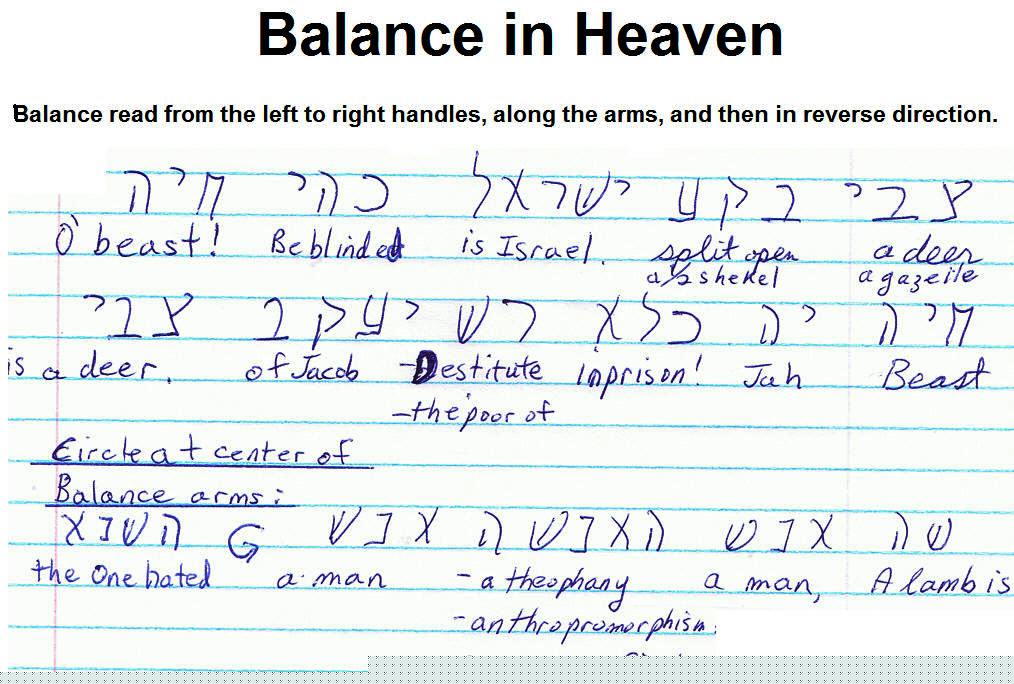 Balance in Heaven
Balance read from the left to right handles, along the arms, and then in reverse direction.
צבי בקע ישראל כהי חיה
O' beast! Be blinded is Israel. split open a deer
a ½ shekel a gazelle
חיה יה כלא רש יעקב צבי
is a deer. of Jacob -Destitute inprison! Jah Beast
-the poor of
Circle at center of
Balance arms:
שה אנש האנשה אנש השנא
the One hated a man - a theophany a man, A lamb is
- anthropromorphism: